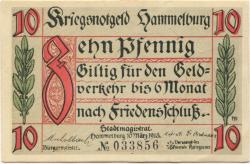 Kriegsnotgeld Hammelburg
10 10
Zehn Pfennig
Gültig für den Geld-
verkehr bis 6 Monat
nach Friedensschluß.
Stadtmagistrat
Hammelburg 10. März 1918.
Bürgermeister.
№ 033856
10 10